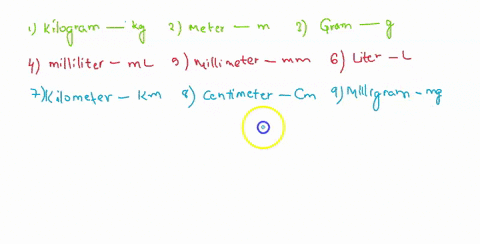 1) Kilogram — kg 2) Meter — m 3) Gram — g
4) milliliter — mL 5) Millimeter — mm 6) Liter — L
7) Kilometer — Km 8) Centimeter — Cm 9) Milligram - mg